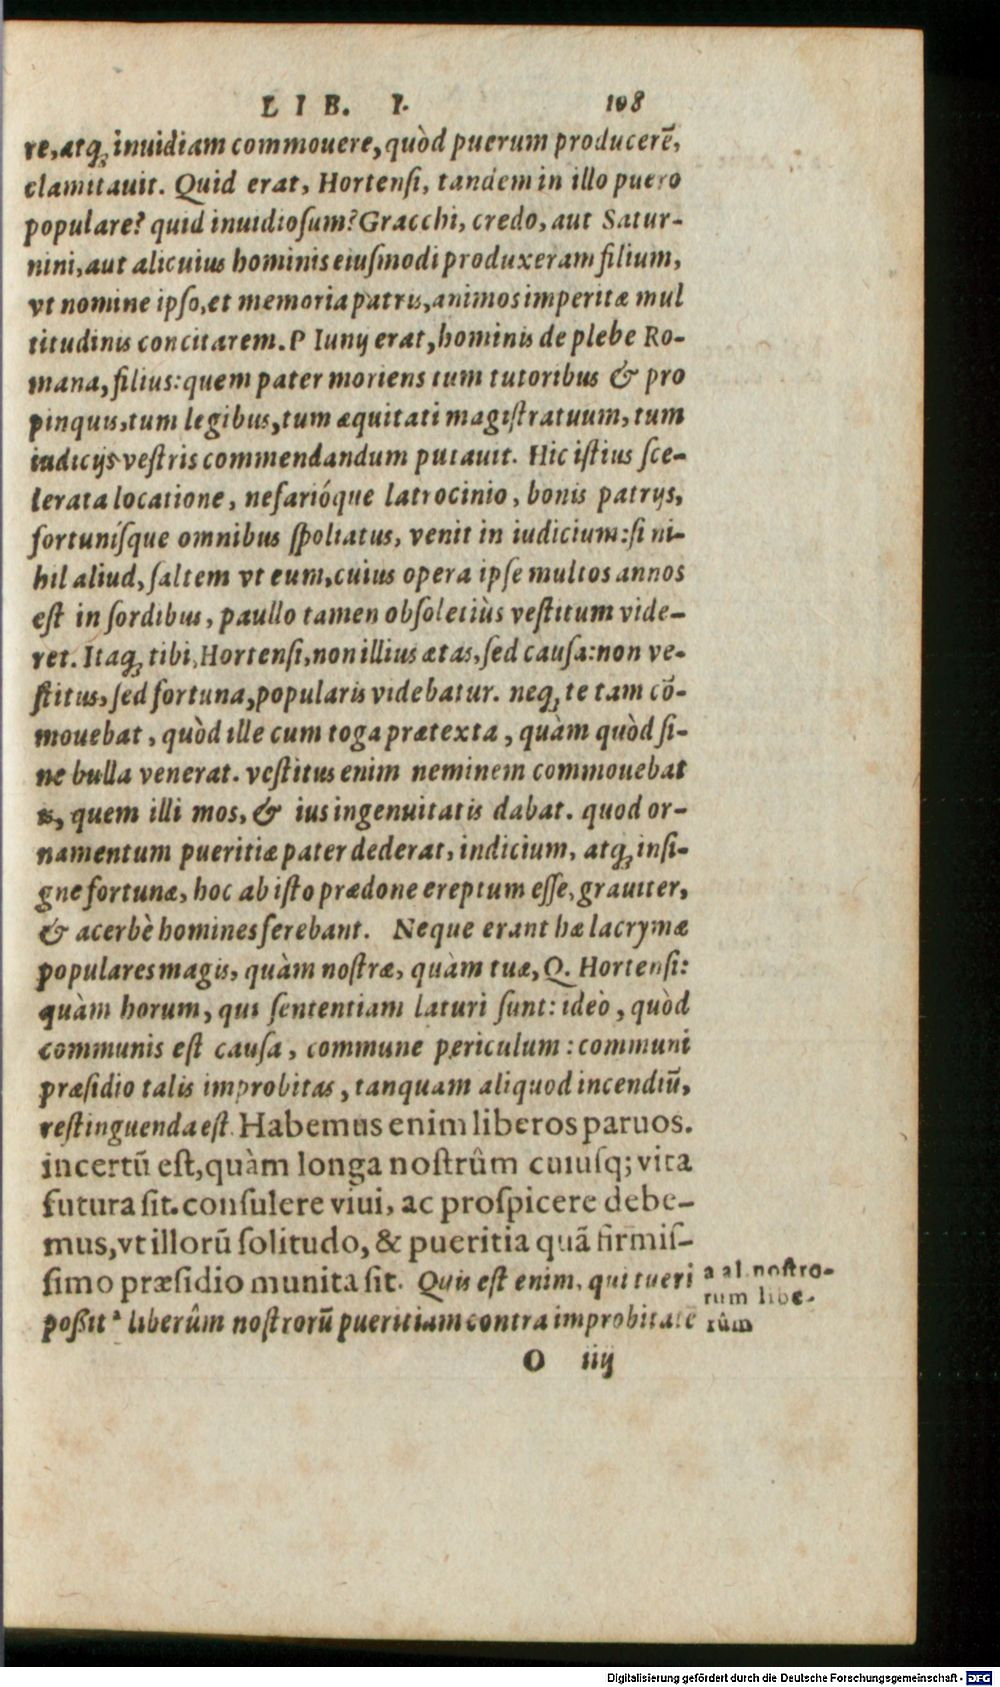 LIB. I. 108
re, atq; inuidiam commouere, quòd puerum producerē,
clamitauit. Quid erat, Hortensi, tandem in illo puero
populare? quid inuidiosum? Gracchi, credo, aut Satur-
nini, aut alicuius hominis eiusmodi produxeram filium,
vt nomine ipso, et memoria patris, animos imperitæ mul
titudinis concitarem. P Iunij erat, hominis de plebe Ro-
mana, filius: quem pater moriens tum tutoribus & pro
pinquis, tum legibus, tum æquitati magistratuum, tum
iudicijs vestris commendandum putauit. Hic istius sce-
lerata locatione, nefarióque latrocinio, bonis patrijs,
fortunísque omnibus spoliatus, venit in iudicium: si ni-
hil aliud, saltem vt eum, cuius opera ipse multos annos
est in sordibus, paullo tamen obsoletiùs vestitum vide-
ret. Itaq; tibi, Hortensi, non illius ætas, sed causa: non ve-
stitus, sed fortuna, popularis videbatur. neq; te tam cō-
mouebat, quòd ille cum toga prætexta, quàm quòd si-
ne bulla venerat. vestitus enim neminem commouebat
is, quem illi mos, & ius ingenuitatis dabat. quod or-
namentum pueritiæ pater dederat, indicium, atq; insi-
gne fortunæ, hoc ab isto prædone ereptum esse, grauiter,
& acerbè homines ferebant. Neque erant hæ lacrymæ
populares magis, quàm nostræ, quàm tuæ, Q. Hortensi:
quàm horum, qui sententiam laturi sunt: ideò, quòd
communis est causa, commune periculum: communi
præsidio talis improbitas, tanquam aliquod incendiū,
restinguenda est. Habemus enim liberos paruos.
incertū est, quàm longa nostrûm cuiusq; vita
futura sit. consulere viui, ac prospicere debe-
mus, vt illorū solitudo, & pueritia quā firmis-
simo præsidio munita sit. Quis est enim, qui tueri
poßit ᵃ liberûm nostrorū pueritiam contra improbitatē
a al. nostro-
rum libe-
rûm
O iiij
Digitalisierung gefördert durch die Deutsche Forschungsgemeinschaft - DFG